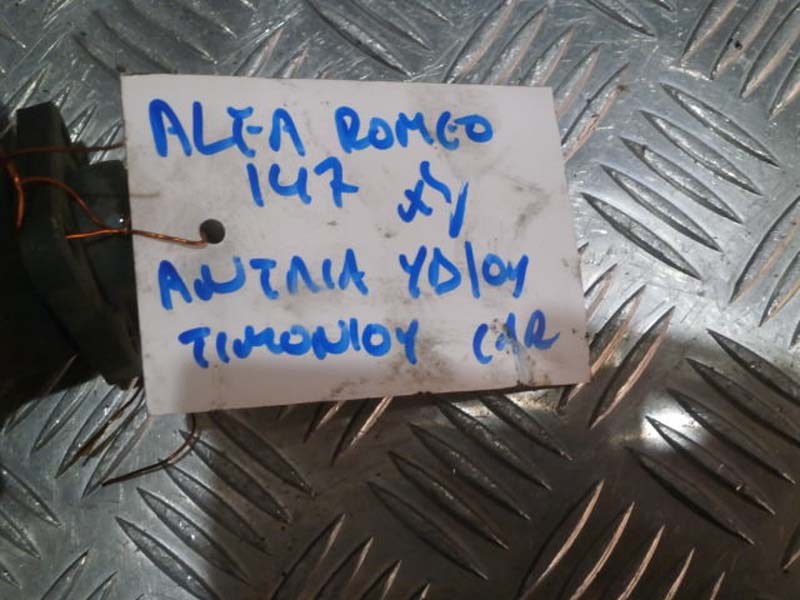 ALFA ROMEO
147
ΑΝΤΛΙΑ ΥΔ/ΟΥ
ΤΙΜΟΝΙΟΥ CAR